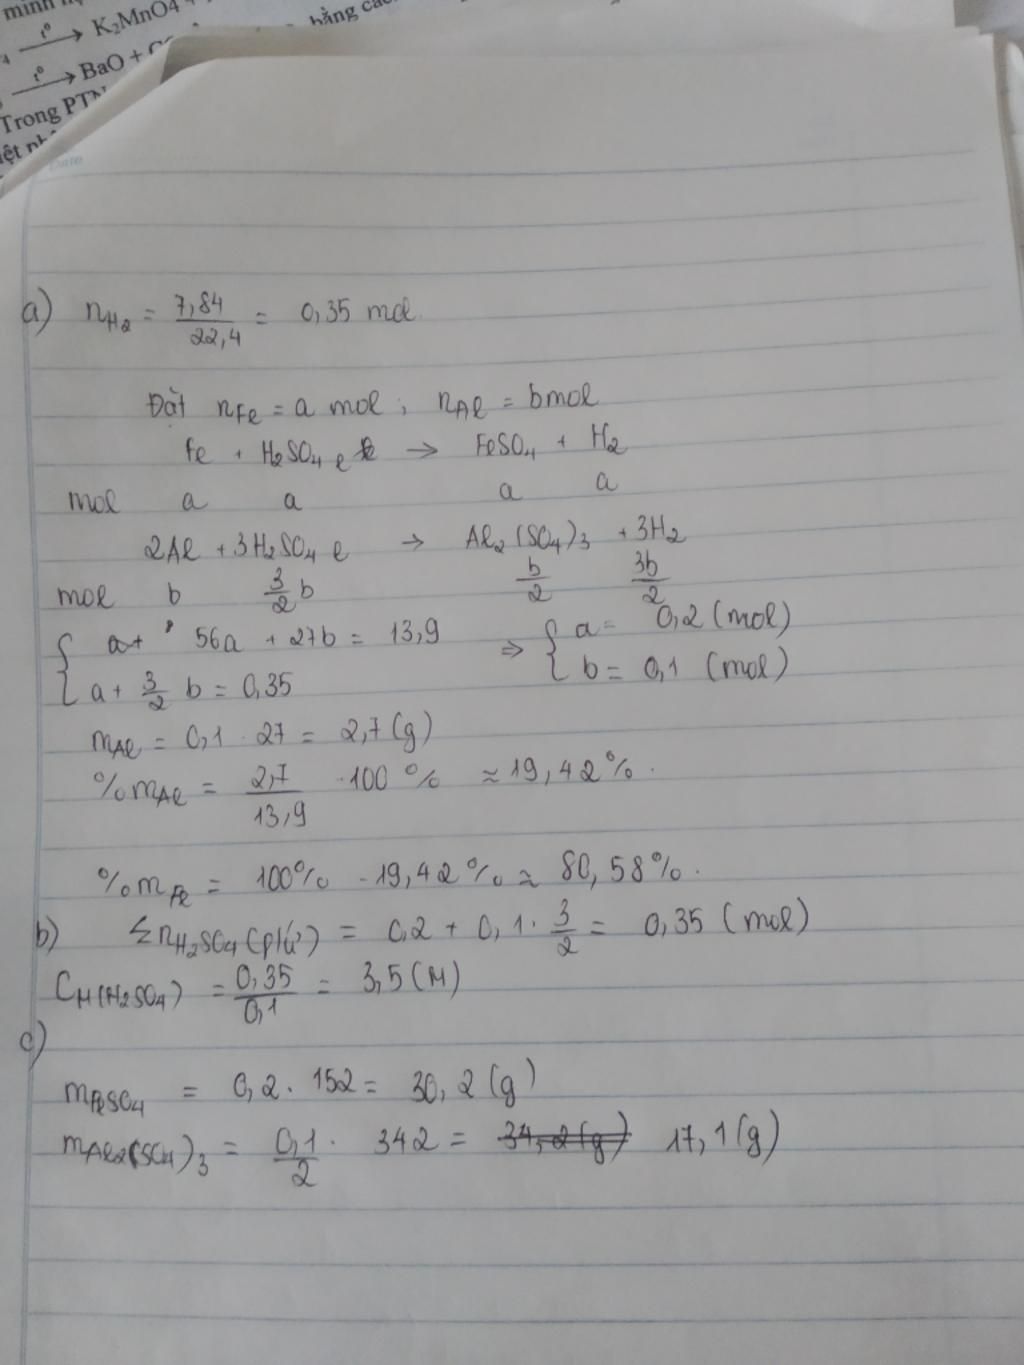 minh
t° → K₂MnO4 +
bằng các
t° → BaO + C
Trong PTN
iệt nh
Date
a) nH₂ = 7,84/22,4 = 0,35 mol.
Đặt nFe = a mol ; nAl = bmol
Fe + H₂SO₄ l → FeSO₄ + H₂
mol a a a a
2Al + 3H₂SO₄ l → Al₂(SO₄)₃ + 3H₂
mol b 3/2 b b/2 3b/2
{ a+ 56a + 27b = 13,9 ⇒ { a = 0,2 (mol)
a + 3/2 b = 0,35 b = 0,1 (mol)
mAl = 0,1 . 27 = 2,7 (g)
%mAl = 2,7/13,9 . 100% ≈ 19,42%.
%mFe = 100% - 19,42% ≈ 80,58%.
b) ΣnH₂SO₄(pứ) = 0,2 + 0,1 . 3/2 = 0,35 (mol)
CM(H₂SO₄) = 0,35/0,1 = 3,5 (M)
c)
mFeSO₄ = 0,2 . 152 = 30,2 (g)
mAl₂(SO₄)₃ = 0,1/2 . 342 = 34,2(g) 17,1 (g)